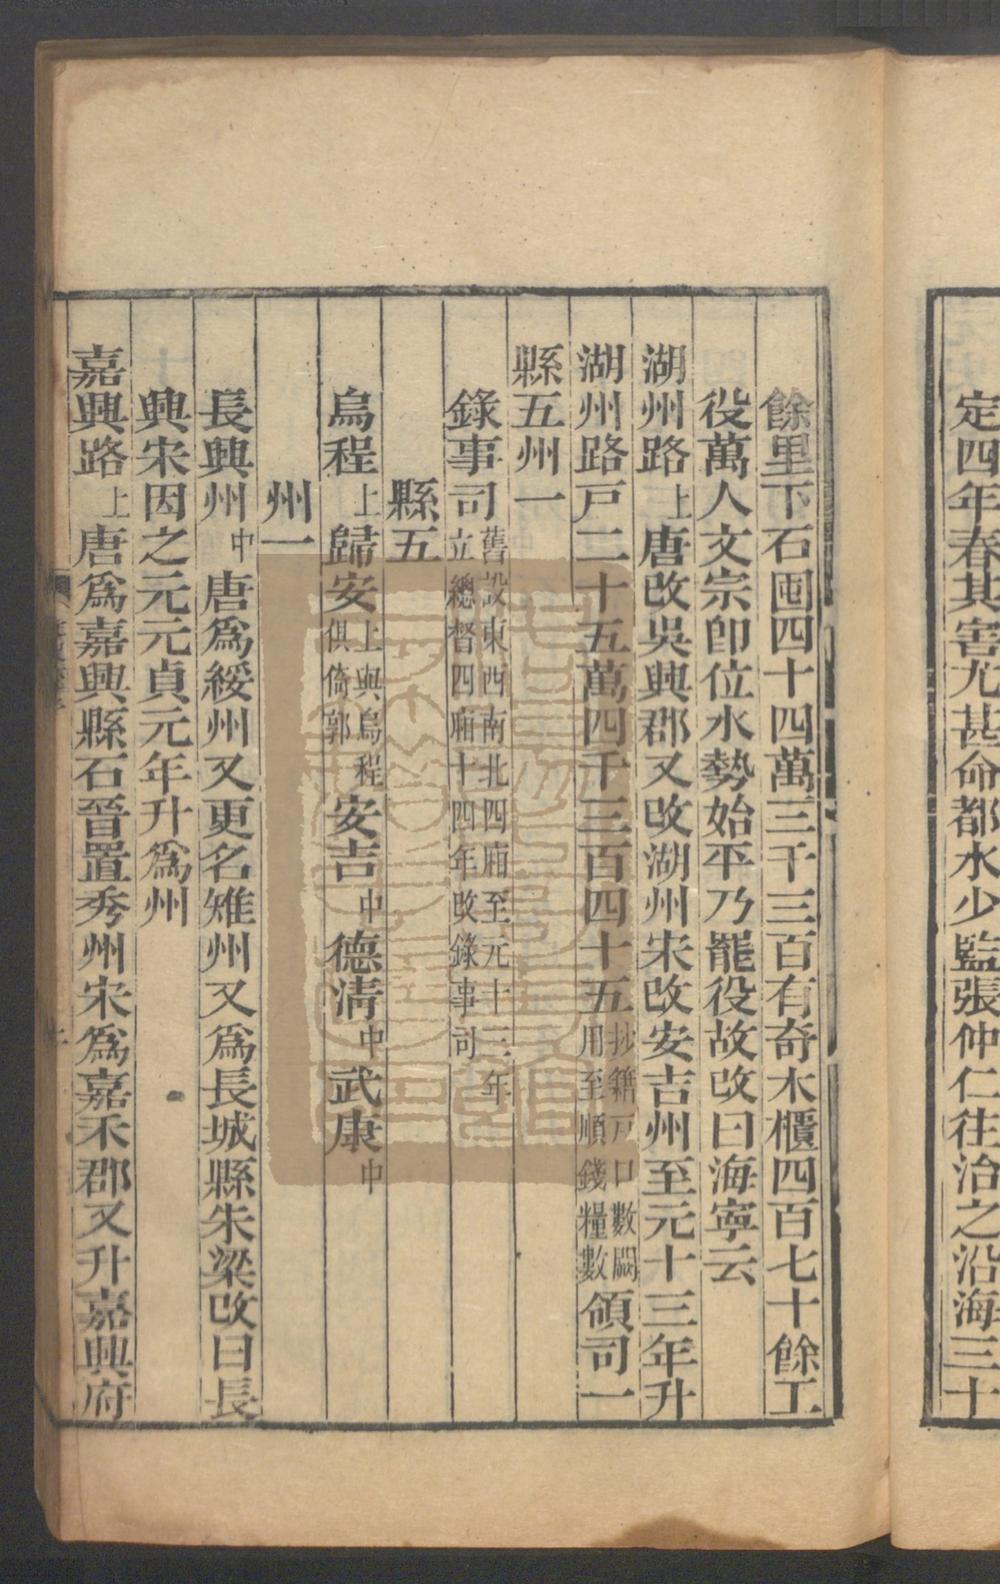 定四年春其害尤甚命都水少監張仲仁往治之沿海三十
餘里下石囤四十四萬三千三百有奇木櫃四百七十餘工
役萬人文宗卽位水勢始平乃罷役故改曰海寧云
湖州路上唐改吳興郡又改湖州宋改安吉州至元十三年升
湖州路戸二十五萬四千三百四十五抄籍戸口數闕用至順錢糧數領司一
縣五州一
錄事司舊設東西南北四廂至元十三年立總督四廂十四年改錄事司
縣五
烏程上歸安上與烏程俱倚郭安吉中德淸中武康中
州一
長興州中唐爲綏州又更名雉州又爲長城縣朱梁改曰長
興宋因之元元貞元年升爲州
嘉興路上唐爲嘉興縣石晉置秀州宋爲嘉禾郡又升嘉興府